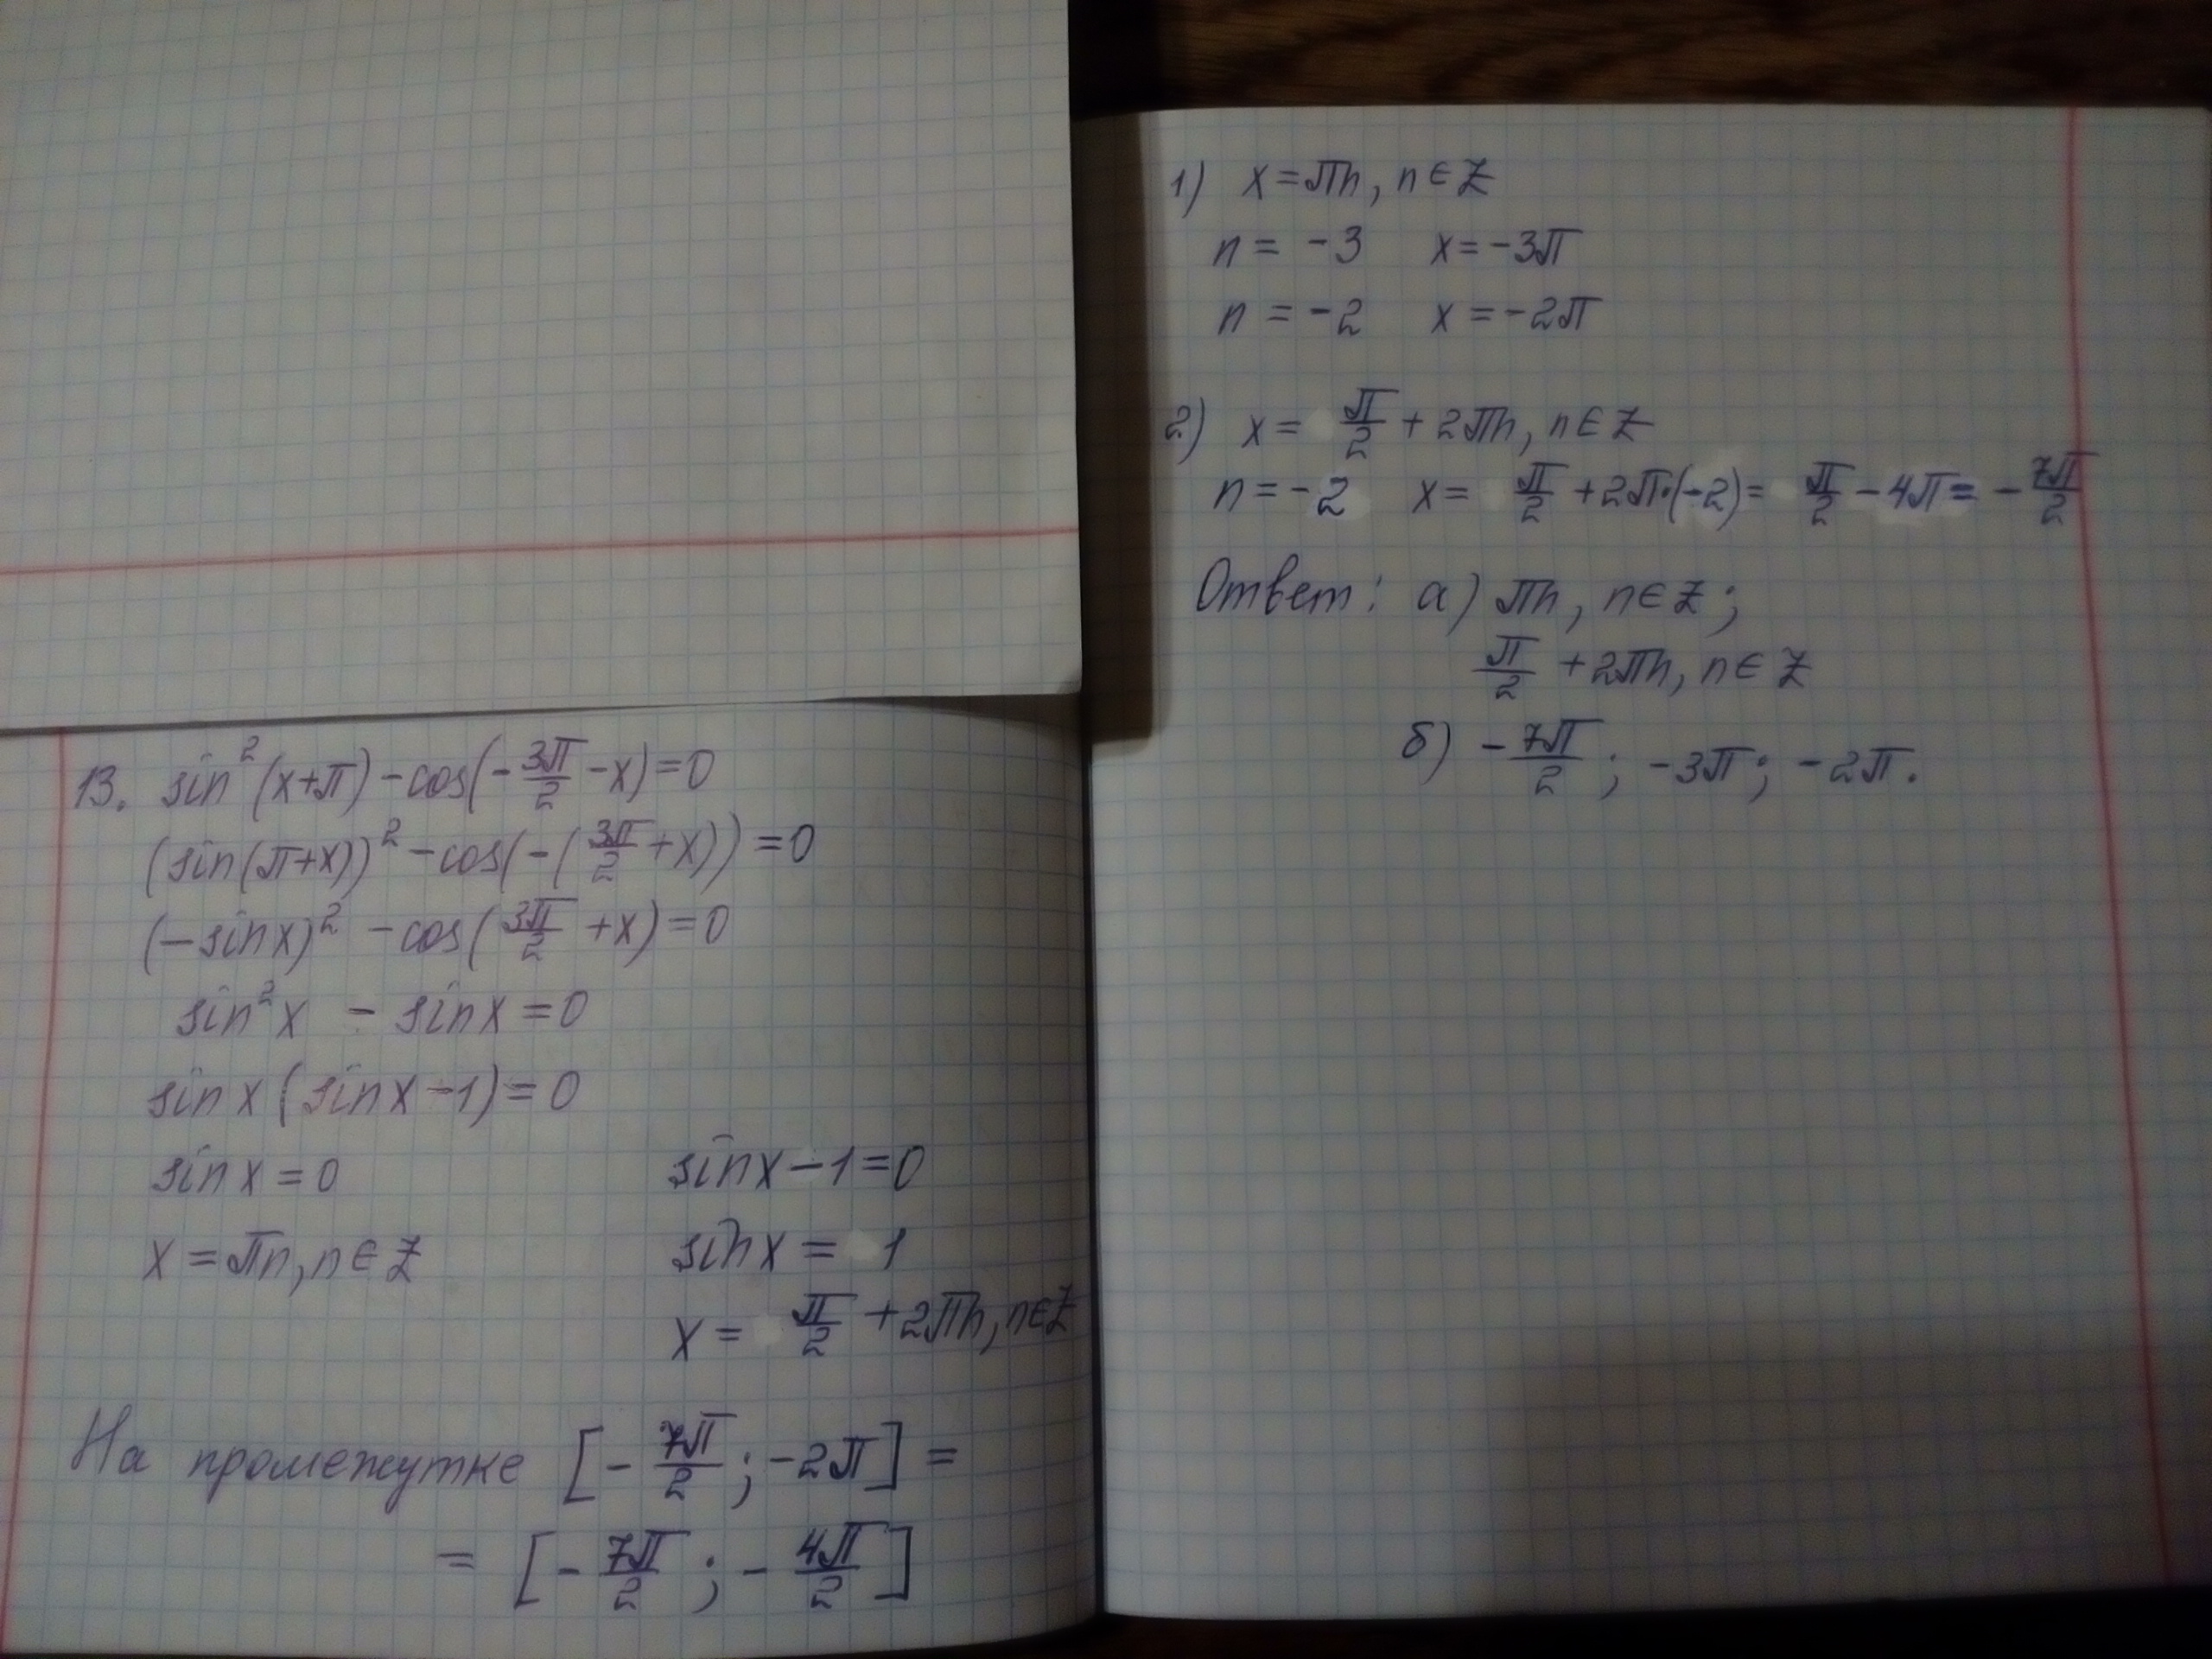 13. sin²(x+π) - cos(-3π/2 - x) = 0
(sin(π+x))² - cos(-(3π/2 + x)) = 0
(-sinx)² - cos(3π/2 + x) = 0
sin²x - sinx = 0
sin x (sinx - 1) = 0
sin x = 0 sinx - 1 = 0
x = πn, n∈Z sinx = 1
x = π/2 + 2πn, n∈Z
На промежутке [-7π/2; -2π] =
= [-7π/2; -4π/2]
1) x = πn, n∈Z
n = -3 x = -3π
n = -2 x = -2π
2) x = π/2 + 2πn, n∈Z
n = -2 x = π/2 + 2π·(-2) = π/2 - 4π = -7π/2
Ответ: а) πn, n∈Z;
π/2 + 2πn, n∈Z
б) -7π/2; -3π; -2π.